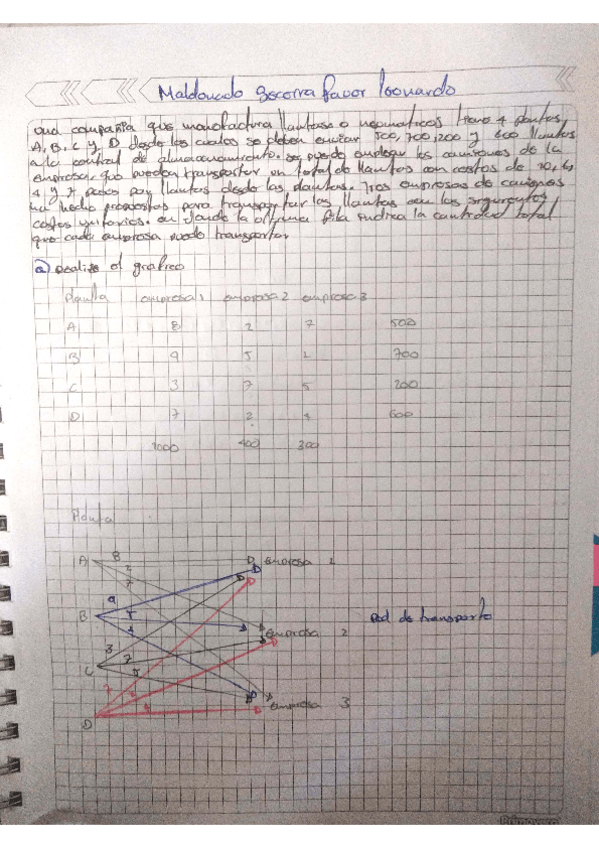 Maldonado Becerra Favor Leonardo
una compañia que manufactura llantas o neumaticos tiene 4 plantas,
A, B, C y D desde las cuales se deben enviar 500, 700, 200 y 600 llantas
a la central de almacenamiento. se puede emplear los camiones de la
empresa, que pueden transportar un total de llantas con costos de 10, 6,
4 y 7 pesos por llantas desde las plantas. Tres empresas de camiones
ha hecho propuestas para transportar las llantas con los siguientes
costos unitarios. en donde la ultima fila indica la cantidad total
que cada empresa puede transportar
a) realize el grafico
Planta empresa 1 empresa 2 empresa 3
A 8 2 7 500
B 9 5 1 700
C 3 7 5 200
D 7 2 4 600
1000 400 300
Planta
A 8 2 7 empresa 1
B 9 5 1 empresa 2 red de transporte
C 3 7 5
D 7 2 4 empresa 3
Primavera